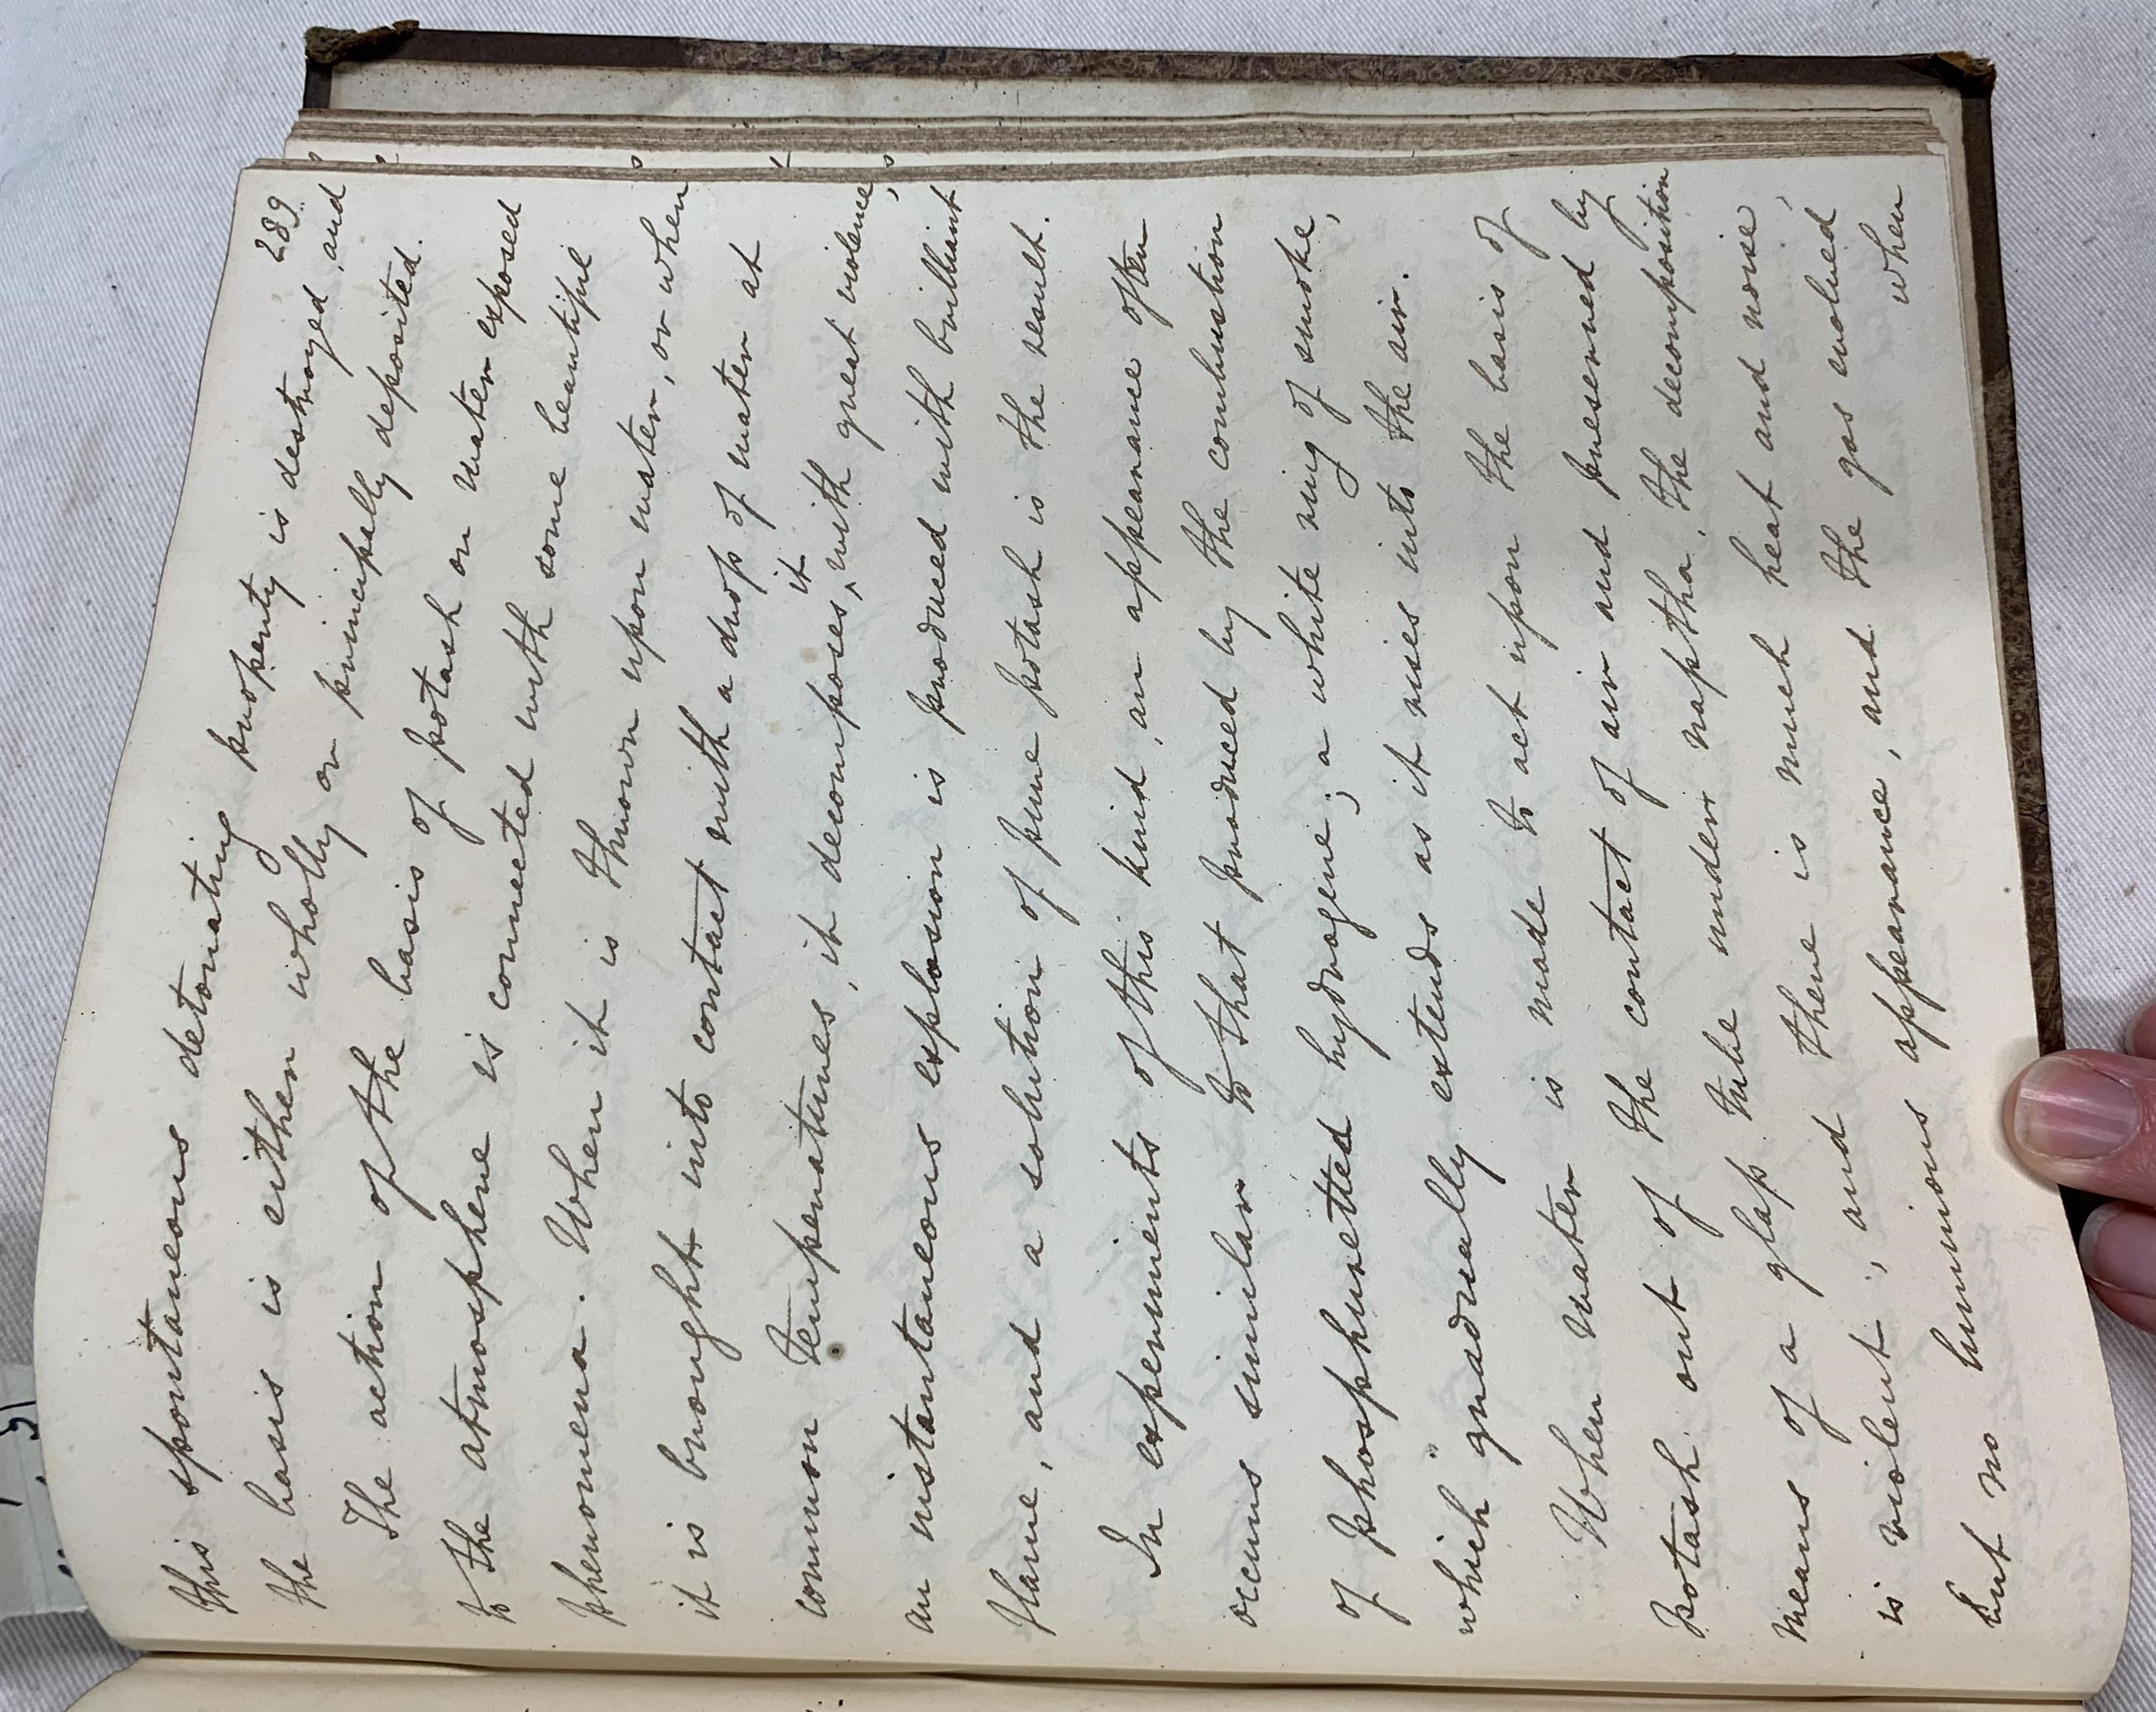 289.
this spontaneous detonating property is destroyed, and
the basis is either wholly or principally deposited.
The action of the basis of potash on water exposed
to the atmosphere is connected with some beautiful
phenomena. When it is thrown upon water, or when
it is brought into contact with a drop of water at
common temperatures, it decomposes, ^ it with great violence,
an instantaneous explosion is produced with brilliant
flame, and a solution of pure potash is the result.
In experiments of this kind, an appearance often
occurs similar to that produced by the combustion
of phosphuretted hydrogene; a white ring of smoke,
which gradually extends as it rises into the air.
When water is made to act upon the basis of
potash out of the contact of air and preserved by
means of a glass tube under naptha, the decomposition
is violent; and there is much heat and noise,
but no luminous appearance, and the gas evolved
when